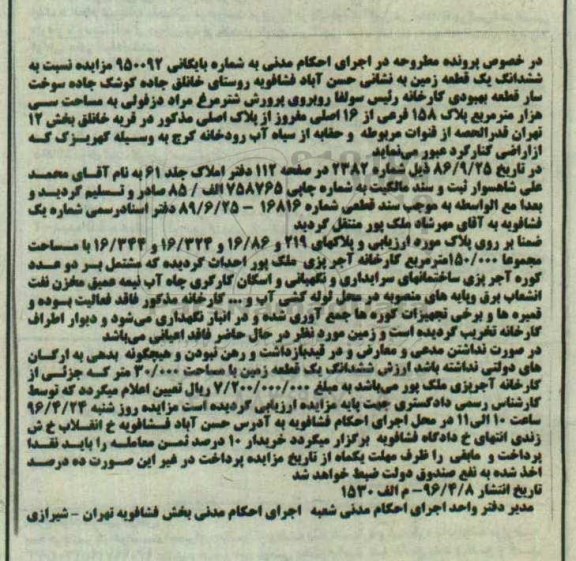 در خصوص پرونده مطروحه در اجرای احکام مدنی به شماره بایگانی ۹۵۰۰۹۲ مزایده نسبت به
ششدانگ یک قطعه زمین به نشانی حسن آباد فشافویه روستای خانلق جاده کوشک جاده سوخت
سار قطعه بهبودی کارخانه رئیس سولفا روبروی پرورش شترمرغ مراد دزفولی به مساحت سی
هزار مترمربع پلاک ۱۵۸ فرعی از ۱۶ اصلی مفروز از پلاک اصلی مذکور در قریه خانلق بخش ۱۲
تهران قدرالحصه از قنوات مربوطه و حقابه از سیاه آب رودخانه کرج به وسیله کهریزک که
ازاراضی کنارگرد عبور می‌نماید
در تاریخ ۸۶/۹/۲۵ ذیل شماره ۲۳۸۲ در صفحه ۱۱۲ دفتر املاک جلد ۶۱ به نام آقای محمد
علی شاهسوار ثبت و سند مالکیت به شماره چاپی ۷۵۸۷۶۵ الف / ۸۵ صادر و تسلیم گردید و
بعدا مع الواسطه به موجب سند قطعی شماره ۱۶۸۱۶ – ۸۹/۶/۲۵ دفتر اسنادرسمی شماره یک
فشافویه به آقای مهرشاد ملک پور منتقل گردید
ضمنا بر روی پلاک مورد ارزیابی و پلاکهای ۲۱۹ و ۱۶/۸۶ و ۱۶/۳۲۴ و ۱۶/۳۴۴ با مساحت
مجموعا ۱۵۰/۰۰۰مترمربع کارخانه آجر پزی ملک پور احداث گردیده که مشتمل بر دو عدد
کوره آجر پزی ساختمانهای سرایداری و نگهبانی و اسکان کارگری چاه آب نیمه عمیق مخزن نفت
انشعاب برق وپایه های منصوبه در محل لوله کشی آب و ... کارخانه مذکور فاقد فعالیت بوده و
قمیره ها و برخی تجهیزات کوره ها جمع آوری شده و در انبار نگهداری می‌شود و دیوار اطراف
کارخانه تخریب گردیده است و زمین مورد نظر در حال حاضر فاقد اعیانی می‌باشد
در صورت نداشتن مدعی و معارض و در قیدبازداشت و رهن نبودن و هیچگونه بدهی به ارگان
های دولتی نداشته باشد ارزش ششدانگ یک قطعه زمین با مساحت ۳۰/۰۰۰ متر که جزئی از
کارخانه آجرپزی ملک پور می‌باشد به مبلغ ۷/۲۰۰/۰۰۰/۰۰۰ ریال تعیین اعلام میگردد که توسط
کارشناس رسمی دادگستری جهت پایه مزایده ارزیابی گردیده است مزایده روز شنبه ۹۶/۴/۲۴
ساعت ۱۰ الی۱۱ در محل اجرای احکام فشافویه به آدرس حسن آباد فشافویه خ انقلاب خ ش
زندی انتهای خ دادگاه فشافویه برگزار میگردد خریدار ۱۰ درصد ثمن معامله را باید نقدا
پرداخت و مابقی را ظرف مهلت یکماه از تاریخ مزایده پرداخت در غیر این صورت ده درصد
اخذ شده به نفع صندوق دولت ضبط خواهد شد
تاریخ انتشار ۹۶/۴/۸– م الف ۱۵۳۰
مدیر دفتر واحد اجرای احکام مدنی شعبه اجرای احکام مدنی بخش فشافویه تهران – شیرازی